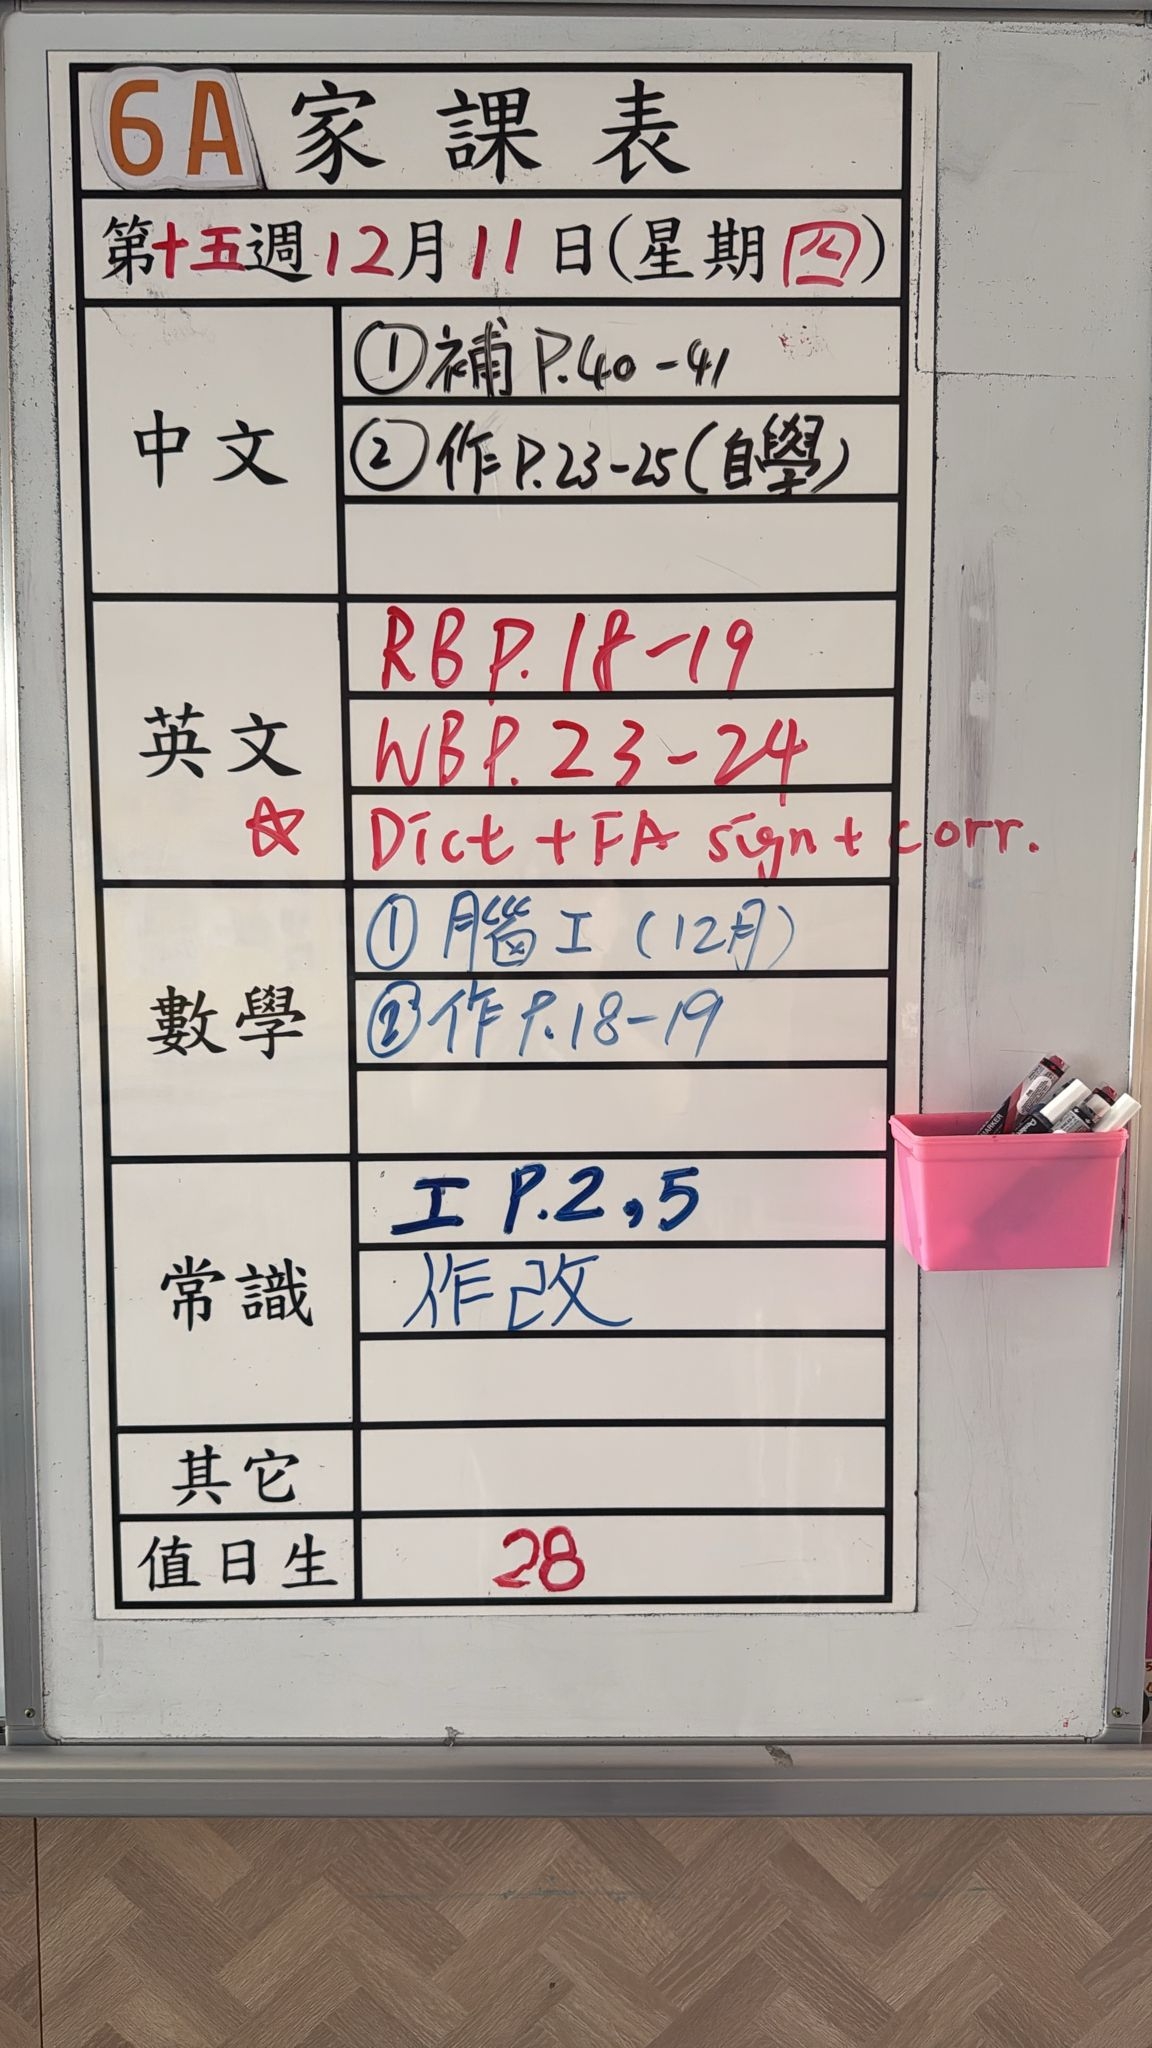 6A 家課表
第十五週 12月 11日(星期四)
中文
① 補 P.40-41
② 作 P.23-25(自學)
英文
RB P.18-19
WB P.23-24
☆ Dict + FA sign + corr.
數學
① 腦工 (12月)
② 作 P.18-19
常識
工 P.2,5
作改
其它
值日生
28